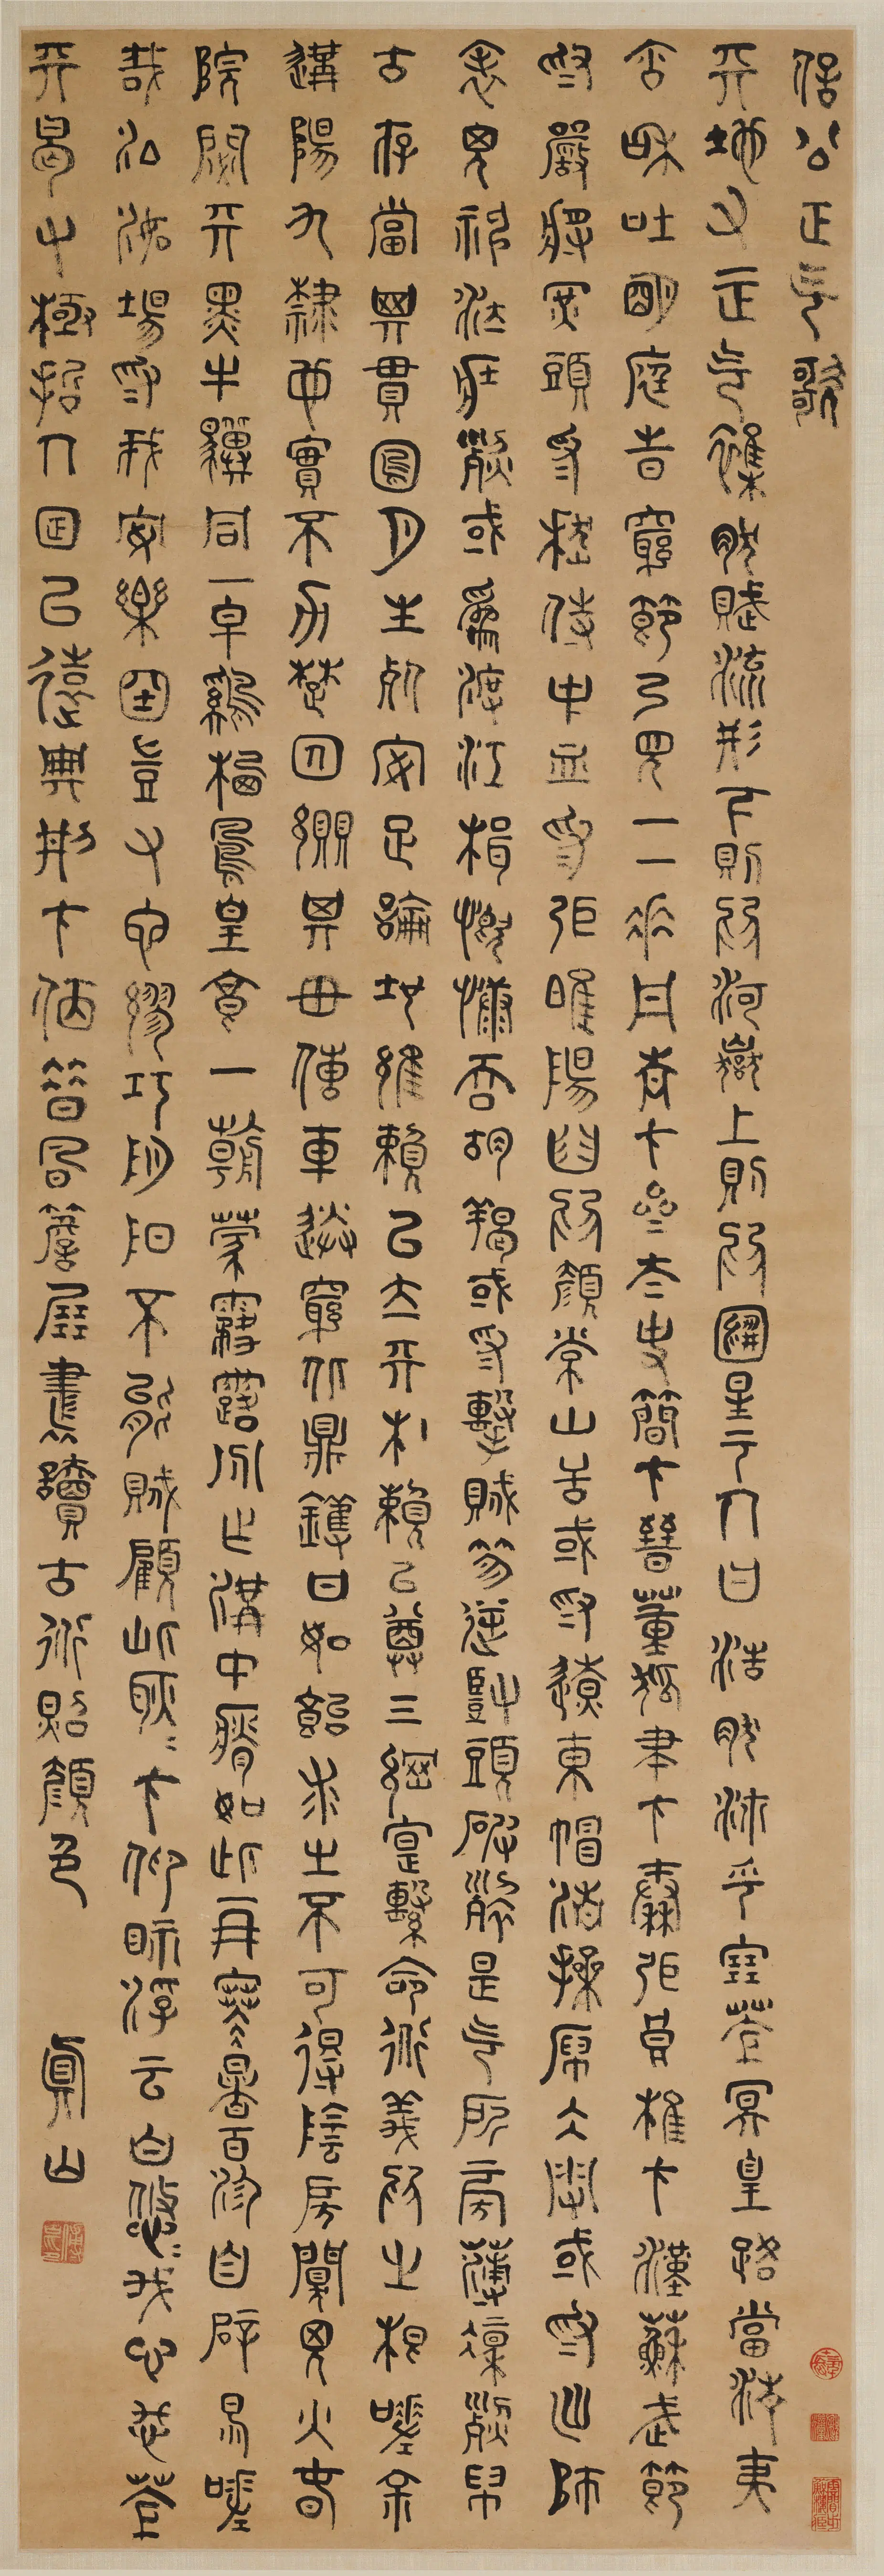 信公正氣歌
天地有正氣雜然賦流形下則為河嶽上則為日星于人曰浩然沛乎塞蒼冥皇路當清夷
含和吐明庭時窮節乃見一一垂丹青在齊太史簡在晉董狐筆在秦張良椎在漢蘇武節
為嚴將軍頭為嵇侍中血為張睢陽齒為顏常山舌或為遼東帽清操厲冰雪或為出師
表鬼神泣壯烈或為渡江楫慷慨吞胡羯或為擊賊笏逆豎頭破裂是氣所旁薄凜烈萬
古存當其貫日月生死安足論地維賴以立天柱賴以尊三綱寔繫命道義為之根嗟余
遘陽九隸也實不力楚囚纓其冠傳車送窮北鼎鑊甘如飴求之不可得陰房闃鬼火春
院閟天黑牛驥同一皁雞棲鳳皇食一朝蒙霧露分作溝中瘠如此再寒暑百沴自辟易嗟
哉沮洳場為我安樂國豈有他繆巧陰陽不能賊顧此耿耿在仰眂浮云白悠悠我心悲蒼
天曷有極哲人日已遠典刑在夙昔風簷展書讀古道照顏色 真山